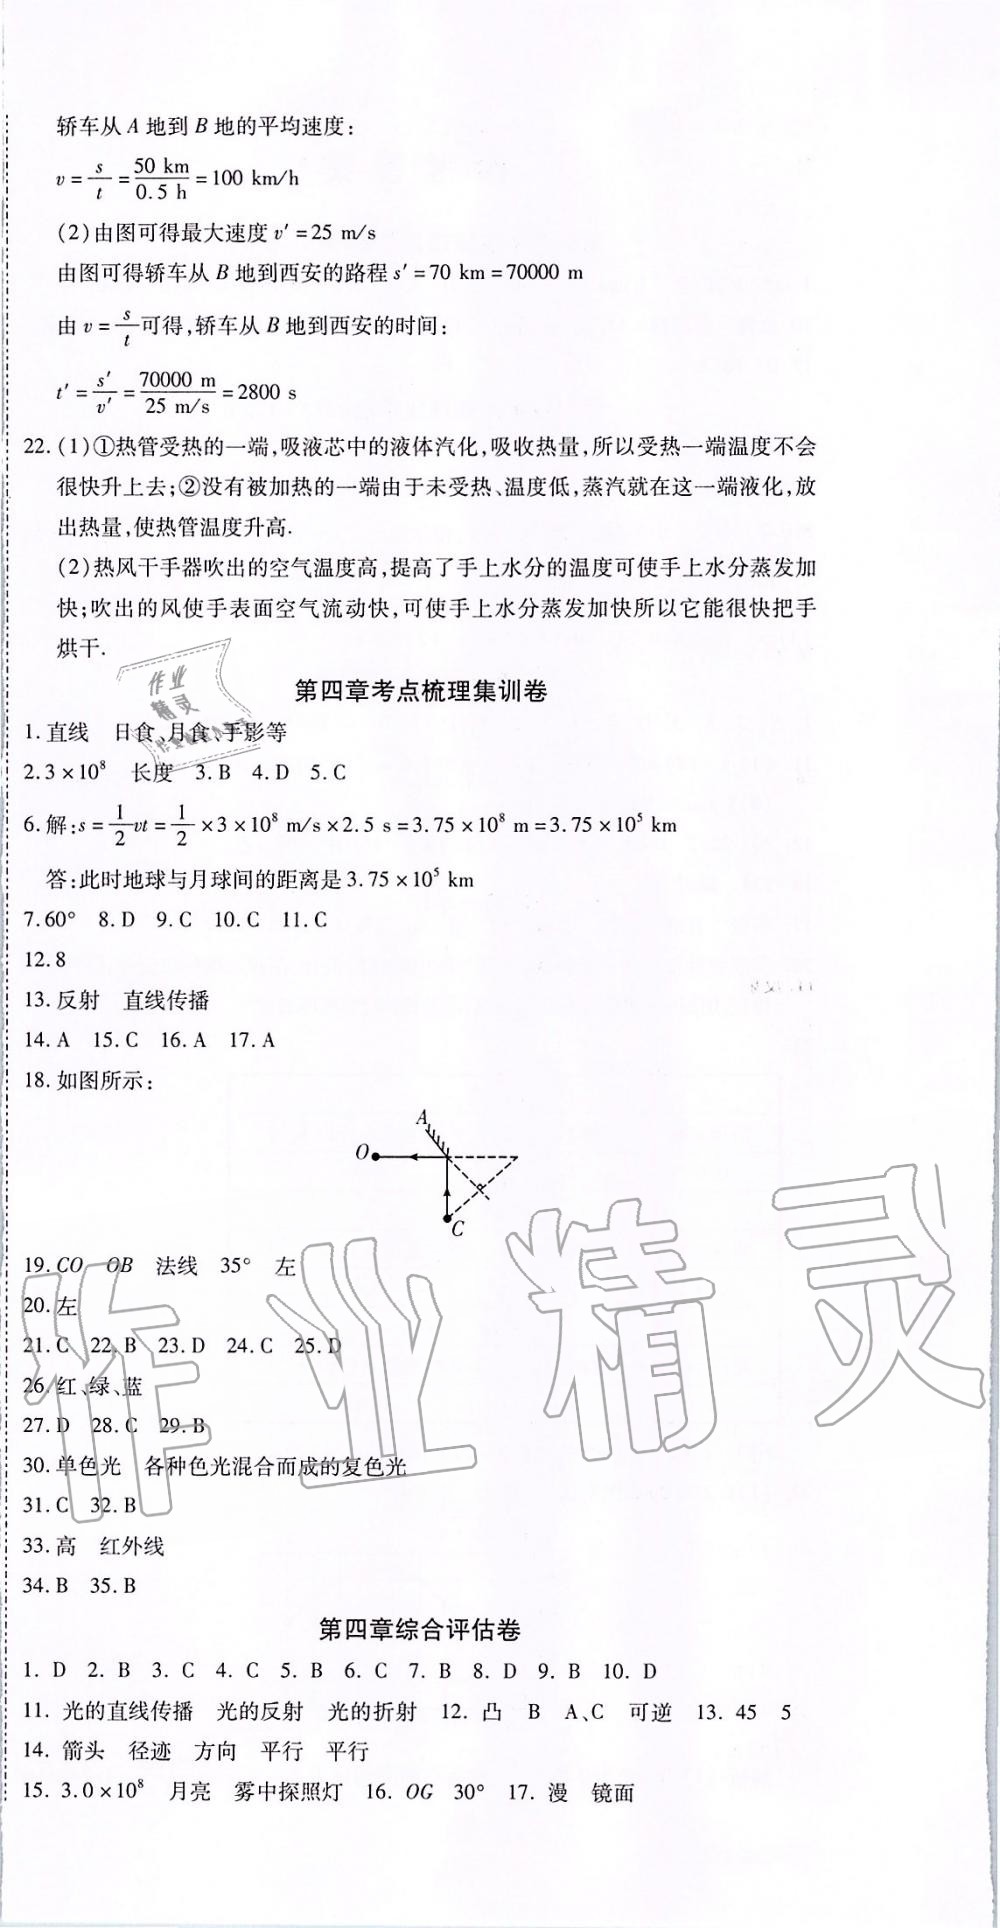 轿车从 A 地到 B 地的平均速度:
v = s/t = 50 km/0.5 h = 100 km/h
(2)由图可得最大速度 v′ = 25 m/s
由图可得轿车从 B 地到西安的路程 s′ = 70 km = 70000 m
由 v = s/t 可得,轿车从 B 地到西安的时间:
t′ = s′/v′ = 70000 m/25 m/s = 2800 s
22. (1)①热管受热的一端,吸液芯中的液体汽化,吸收热量,所以受热一端温度不会
很快升上去;②没有被加热的一端由于未受热、温度低,蒸汽就在这一端液化,放
出热量,使热管温度升高.
(2)热风干手器吹出的空气温度高,提高了手上水分的温度可使手上水分蒸发加
快;吹出的风使手表面空气流动快,可使手上水分蒸发加快所以它能很快把手
烘干.
作业
精灵
第四章考点梳理集训卷
1. 直线 日食、月食、手影等
2. 3×10⁸ 长度 3. B 4. D 5. C
6. 解: s = 1/2 vt = 1/2 ×3×10⁸ m/s×2.5 s = 3.75×10⁸ m = 3.75×10⁵ km
答:此时地球与月球间的距离是 3.75×10⁵ km
7. 60° 8. D 9. C 10. C 11. C
12. 8
13. 反射 直线传播
14. A 15. C 16. A 17. A
18. 如图所示:
A
O
C
19. CO OB 法线 35° 左
20. 左
21. C 22. B 23. D 24. C 25. D
26. 红、绿、蓝
27. D 28. C 29. B
30. 单色光 各种色光混合而成的复色光
31. C 32. B
33. 高 红外线
34. B 35. B
作业精灵
第四章综合评估卷
1. D 2. B 3. C 4. C 5. B 6. C 7. B 8. D 9. B 10. D
11. 光的直线传播 光的反射 光的折射 12. 凸 B A、C 可逆 13. 45 5
14. 箭头 径迹 方向 平行 平行
15. 3.0×10⁸ 月亮 雾中探照灯 16. OG 30° 17. 漫 镜面